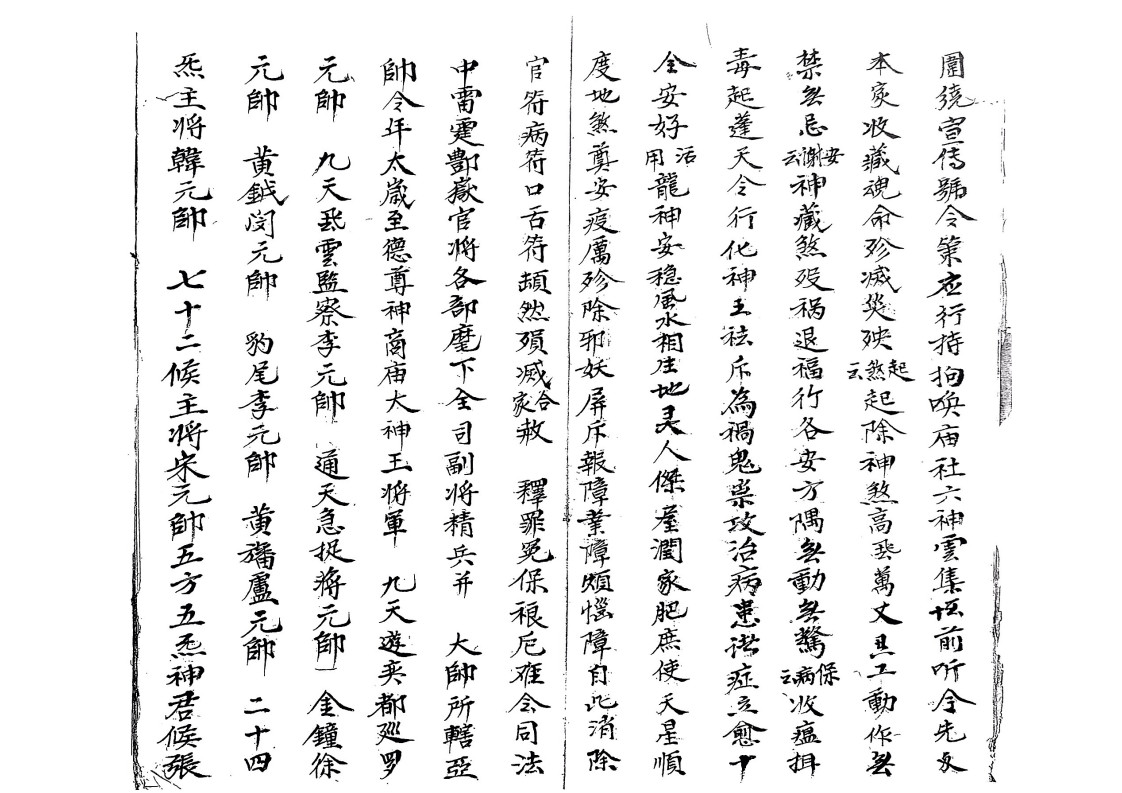 圍繞宣傳號令策应行持拘喚庙社六神雲集垓前听令先文
本家收藏魂命殄滅災殃起煞云起除神煞高飛萬丈且工動作無
禁無忌安謝云神藏煞歿禍退福行各安方隅無動無驚保病云收瘟揖
毒起蓬天令行化神王祛斥為禍鬼祟攻治病患諸症立愈十
全安好活用龍神安穩風水相生地灵人傑屋潤家肥庶使天星順
度地煞奠安疫厲殄除邪妖屏斥報障業障煩惱障自此消除
官符病符口舌符頓然殞滅合家赦　釋罪冤保禳厄难令同法
中雷霆酆嶽官將各部麾下全司副將精兵并　大帥所轄亞
帥令年太歲至德尊神商庙大神王將軍　九天遊奕都巡罗
元帥　九天飛雲監察李元帥　通天急捉蔣元帥　金鐘徐
元帥　黃鉞闵元帥　豹尾李元帥　黃旛盧元帥　二十四
炁主將韓元帥　七十二候主將宋元帥五方五炁神君候張